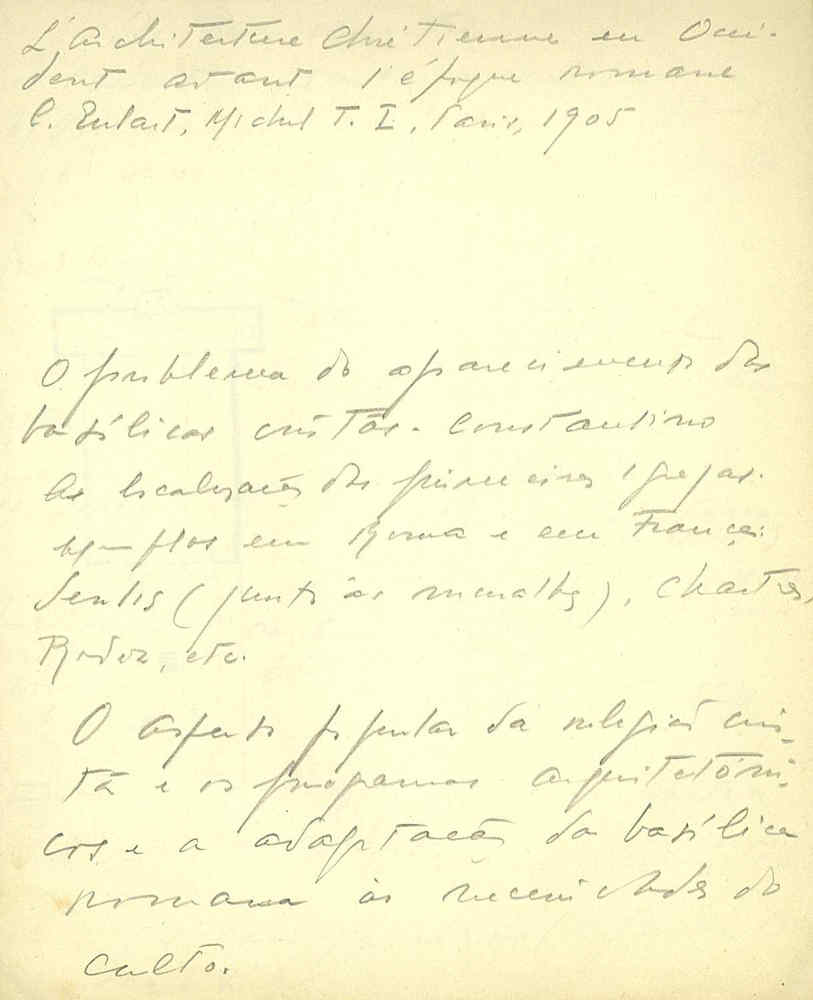 L'architecture chrétienne en Occi-
dent avant l'époque romane
C. Enlart, Michel T. I, Paris, 1905
O problema do aparecimento das
basílicas cristãs. Constantino
As localizações das primeiras igrejas.
exemplos em Roma e em França:
Senlis (junto às muralhas), Chartres,
Rodez, etc.
O aspecto popular da religião cris-
tã e os programas arquitetôni-
cos e a adaptação da basílica
romana às necessidades do
culto.